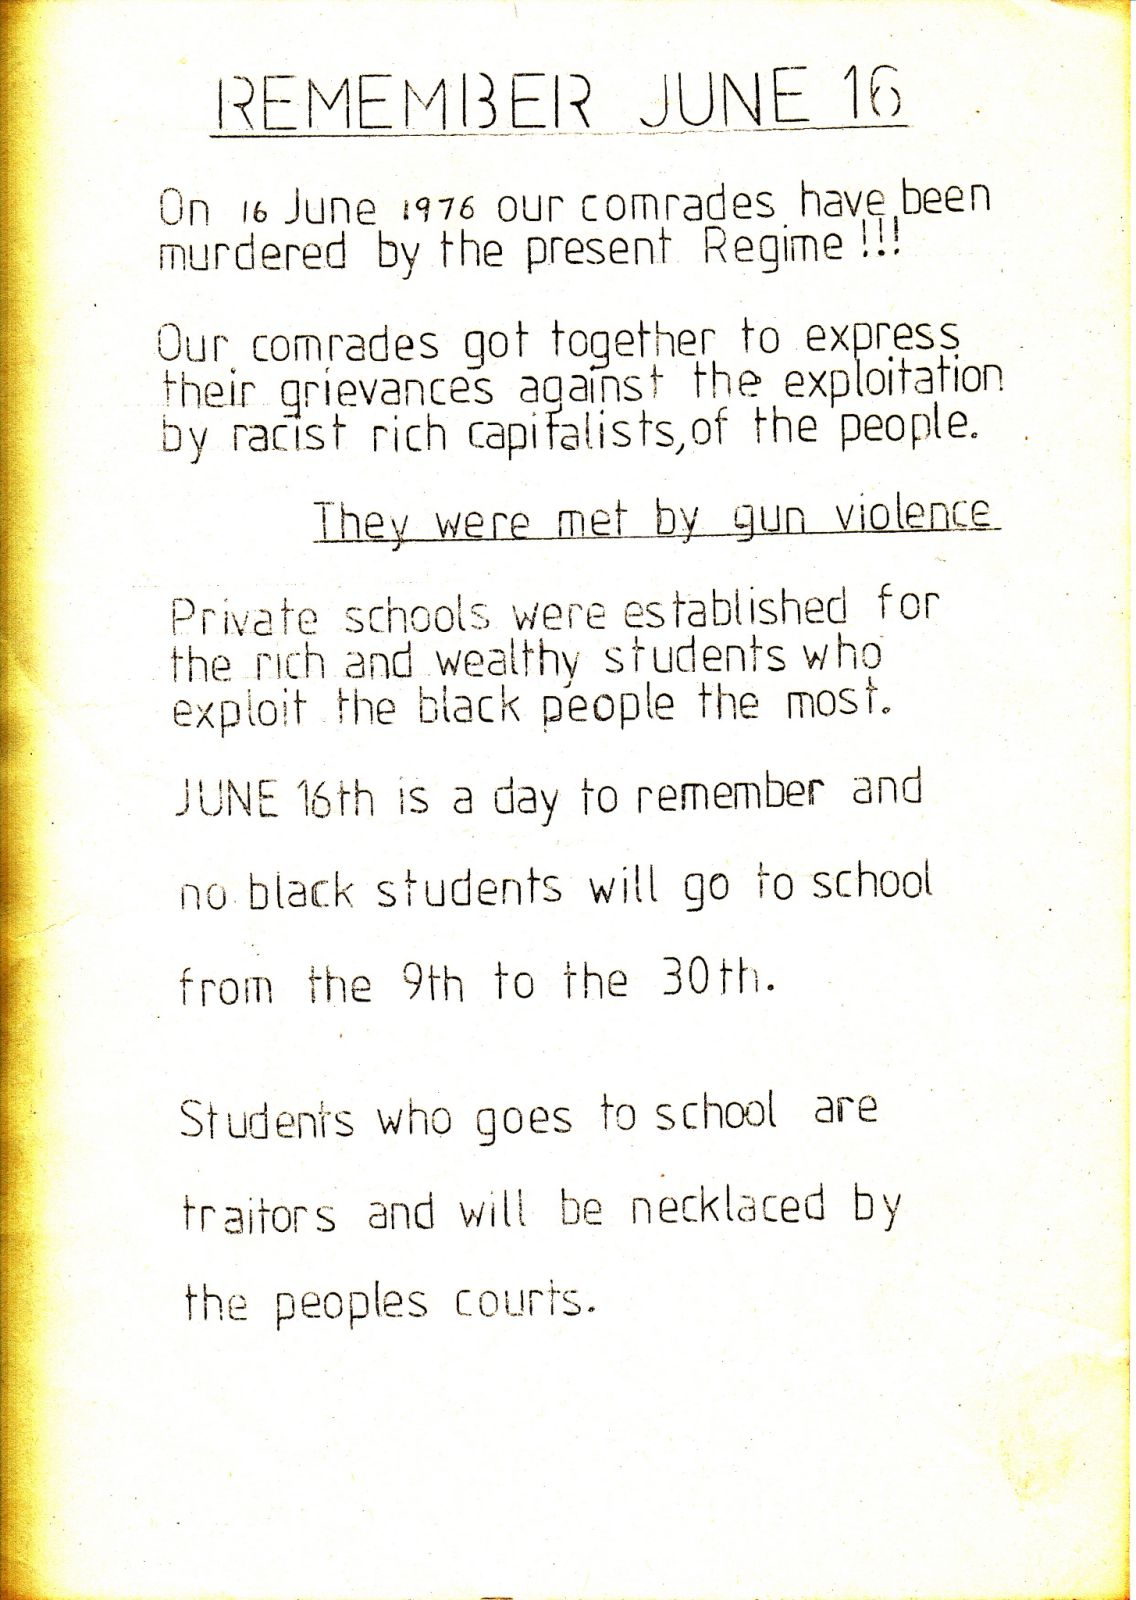 REMEMBER JUNE 16
On 16 June 1976 our comrades have been
murdered by the present Regime !!!
Our comrades got together to express
their grievances against the exploitation
by racist rich capitalists, of the people.
They were met by gun violence
Private schools were established for
the rich and wealthy students who
exploit the black people the most.
JUNE 16th is a day to remember and
no black students will go to school
from the 9th to the 30th.
Students who goes to school are
traitors and will be necklaced by
the peoples courts.